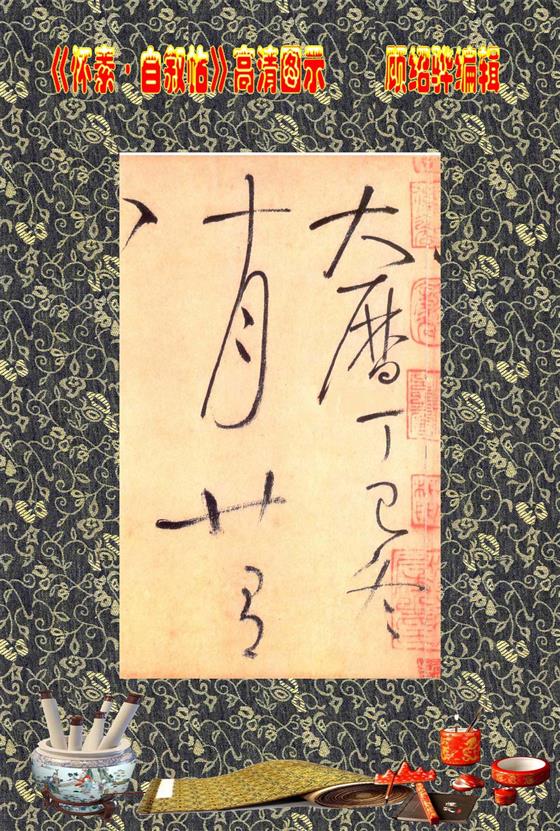 《怀素·自叙帖》高清图示 顾绍骅编辑
大曆丁巳冬
十月廿有